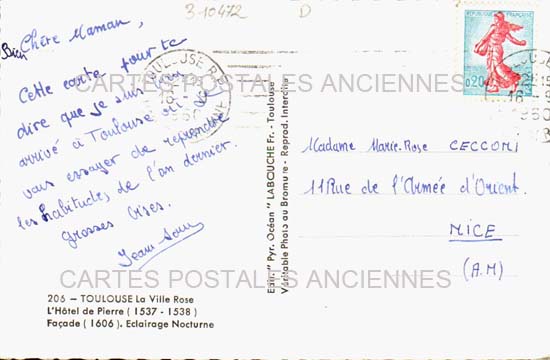 3-10472 D
Chère Maman,
Bien
Cette carte pour te
dire que je suis
arrivé à Toulouse où je
vais essayer de reprendre
les habitudes de l'an dernier.
Grosses bises.
Jean-
RÉPUBLIQUE FRANÇAISE
0,20
TOULOUSE R.P.
1960
TOULOUSE R.P.
16 -
1960
CARTES POSTALES ANCIENNES
Edit. "Pyr. Océan" LABOUCHE Fr. - Toulouse
Véritable Photo au Bromure - Reprod. Interdite
Madame Marie-Rose CECCONI
11 Rue de l'Armée d'Orient.
NICE
(A.M)
CARTES POSTALES ANCIENNES
206 — TOULOUSE La Ville Rose
L'Hôtel de Pierre ( 1537 - 1538 )
Façade ( 1606 ). Eclairage Nocturne